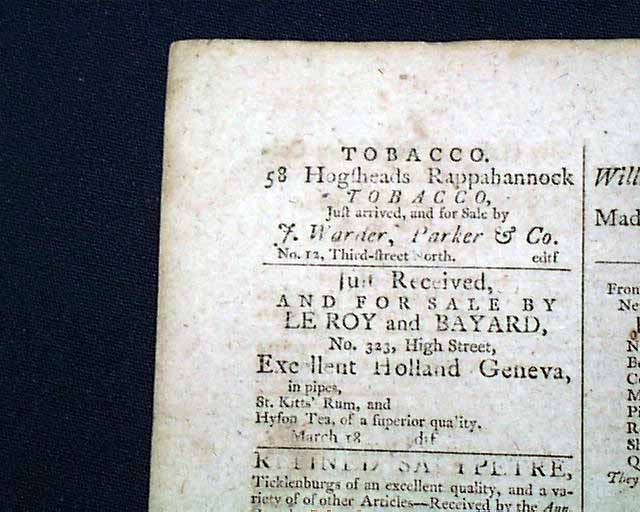 TOBACCO.
58 Hogſheads Rappahannock
TOBACCO,
Juſt arrived, and for Sale by
J. Warder, Parker & Co.
No. 12, Third-ſtreet North.   edtf
Juſt Received,
AND FOR SALE BY
LE ROY and BAYARD,
No. 323, High Street,
Excellent Holland Geneva,
in pipes,
St. Kitts' Rum, and
Hyſon Tea, of a ſuperior quality.
March 18   dtf
REFINED SALTPETRE,
Ticklenburgs of an excellent quality, and a va-
riety of of other Articles—Received by the Ann,
Will
Mad
From
Ne
N
B
C
M
P
R
Sh
Q
They